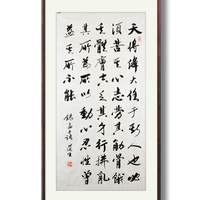 天將降大任于斯人也必
先苦其心志勞其筋骨餓
其體膚空乏其身行拂亂
其所為所以動心忍性曾
益其所不能